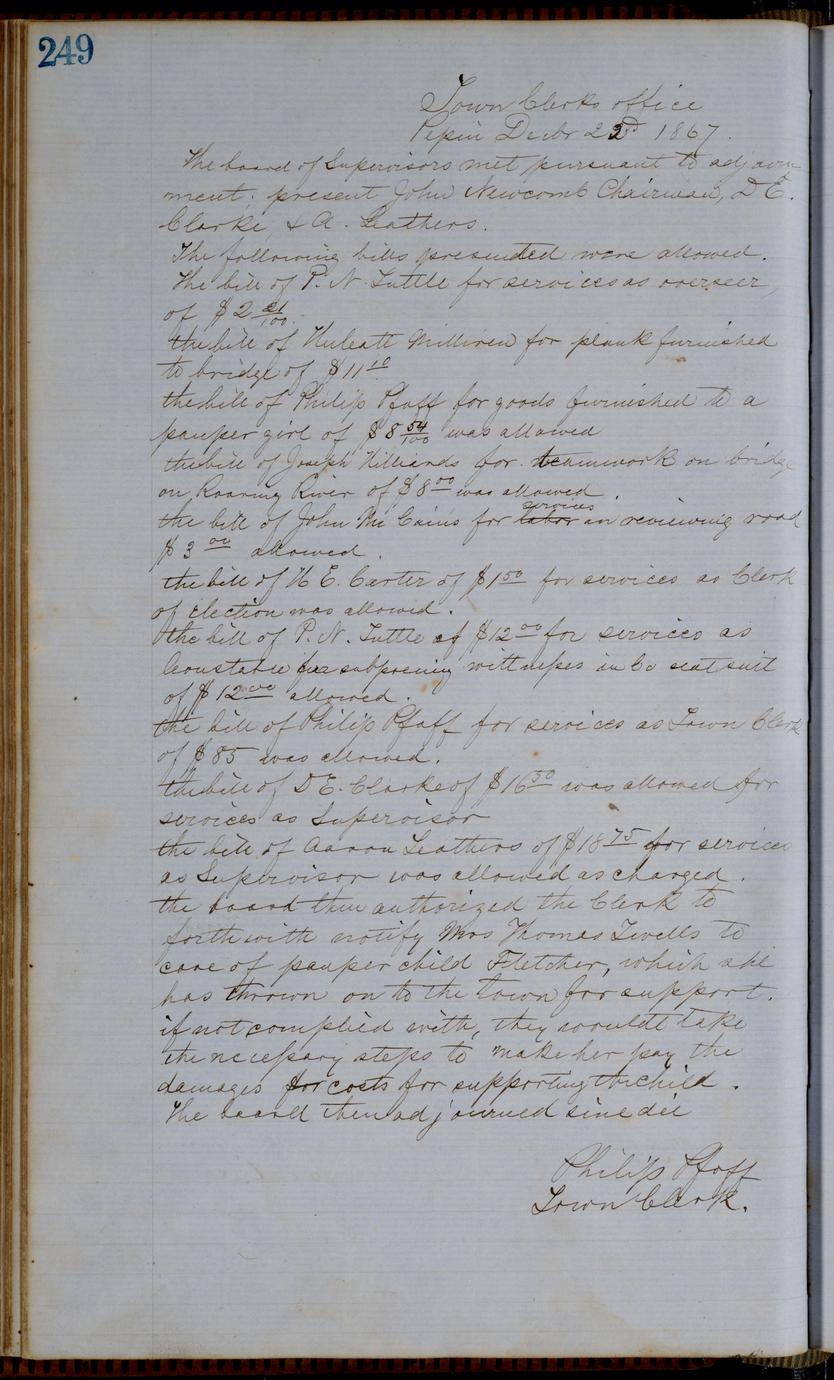 249
Town Clerks office
Pepin Decbr 23d 1867.
The board of Supervisors met pursuant to adjourn
ment; present John Newcomb Chairman, D E.
Clarke, & A. Leathers.
The following bills presented were allowed.
The bill of P. N. Tuttle for services as overseer,
of $ 2
the bill of Milliren for plank furnished
to bridge of $ 11
the bill of Philip Pfaff for goods furnished to a
pauper girl of $ 8 54/100 was allowed
the bill of Joseph Hilliards for teamwork on bridge
on Roaring River of $ 8 00 was allowed.
services
the bill of John Mc Cains for labor on reviewing road
$ 3 00 allowed.
the bill of H E. Carter of $1 50 for services as Clerk
of Election was allowed.
the bill of P. N. Tuttle of $12 00 for services as
Constable for subpoening wittnesses in Co seat suit
of $ 12 00 allowed.
the bill of Philip Pfaff for services as Town Clerk
of $ 85 was allowed.
the bill of D E. Clarke of $ 16 50 was allowed for
services as Supervisor
the bill of Aaron Leathers of $ 18 75 for services
as Supervisor was allowed as charged.
the board then authorized the Clerk to
forthwith notify Mrs Thomas Twells to
care of pauper child Fletcher, which she
has thrown on to the town for support.
if not complied with, they would take
the necessary steps to make her pay the
damages for costs for supporting the child.
The board then adjourned sine die
Philip Pfaff
Town Clerk.